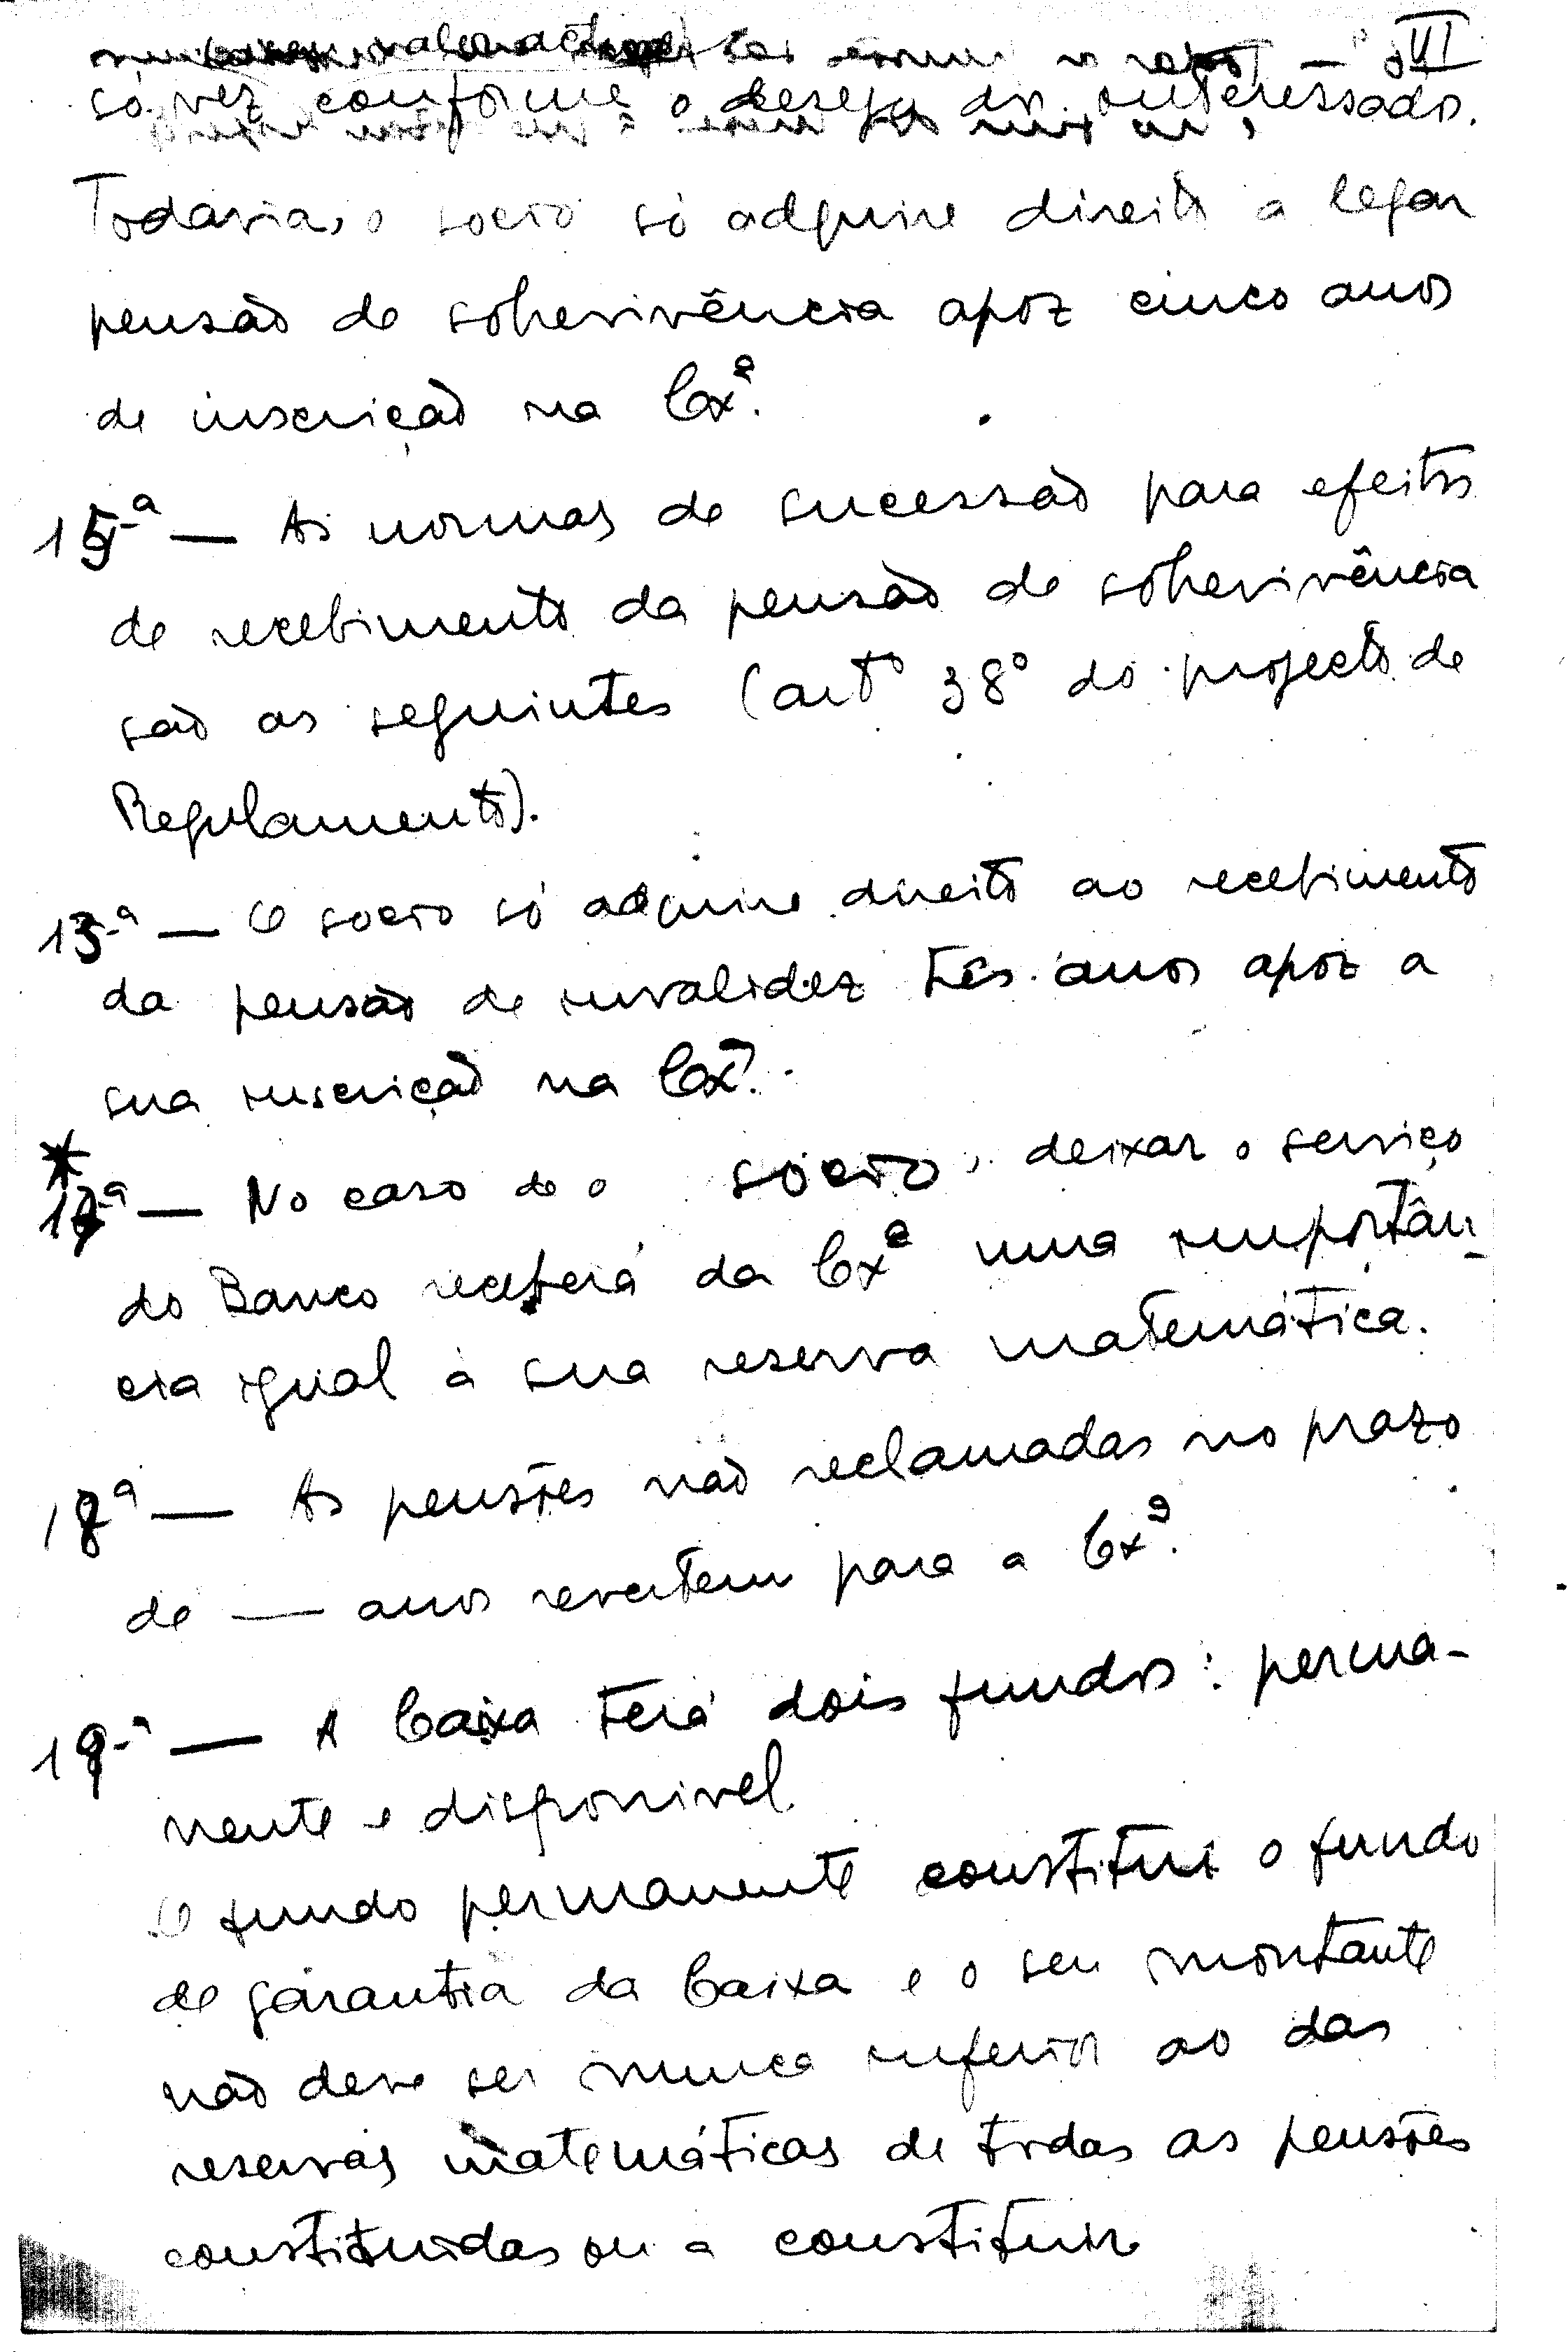 VI
só vez conforme o desejo do interessado.
Todavia, o socio só adquire direito a legar
pensão de sobrevivência apoz cinco anos
de inscrição na Cxª.
15ª — As normas de sucessão para efeitos
de recebimento da pensão de sobrevivência
são as seguintes (artº 38º do projecto de
Regulamento).
13ª — O socio só adquire direito ao recebimento
da pensão de invalidez três anos apoz a
sua inscrição na Cxª.
* 17ª — No caso de o sócio, deixar o serviço
do Banco receberá da Cxª uma importân-
cia igual à sua reserva matemática.
18ª — As pensões não reclamadas no prazo
de — anos revertem para a Cxª.
19ª — A Caixa terá dois fundos: perma-
nente e disponivel
O fundo permanente constitui o fundo
de garantia da Caixa e o seu montante
não deve ser nunca inferior ao das
reservas matemáticas de todas as pensões
constituidas ou a constituir